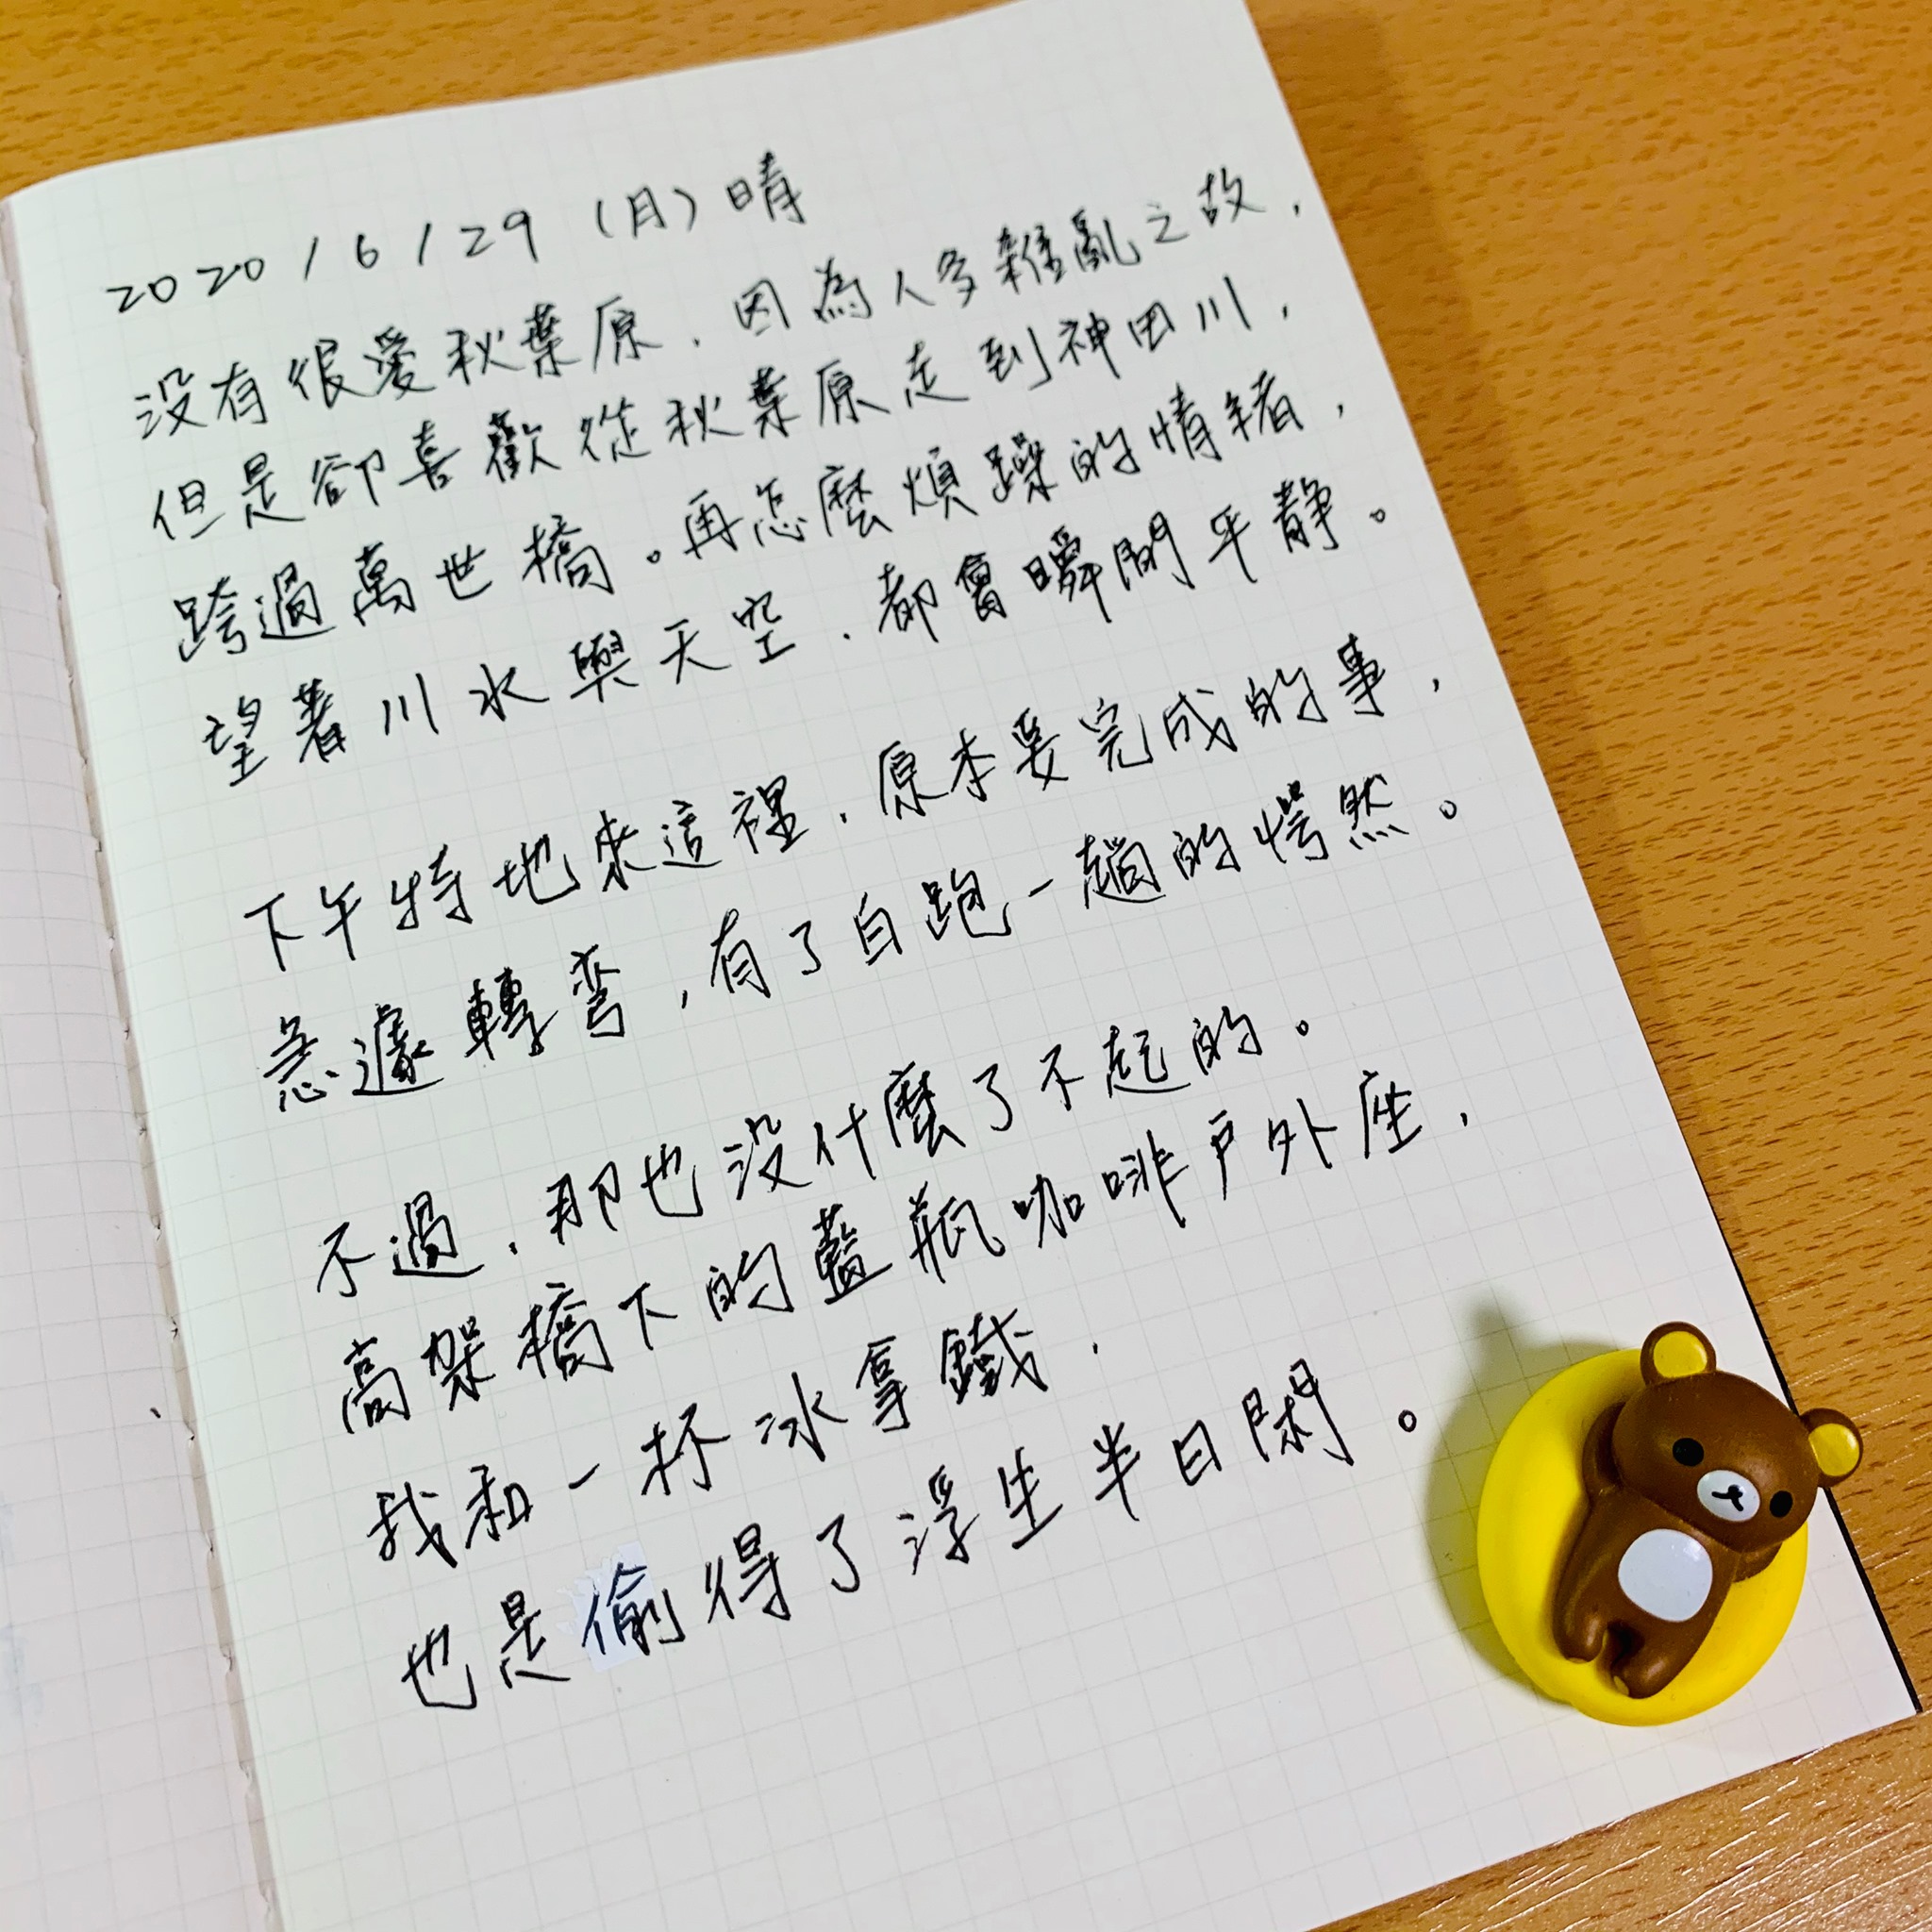 2020/6/29（月）晴
沒有很愛秋葉原，因為人多雜亂之故，
但是卻喜歡從秋葉原走到神田川，
跨過萬世橋。再怎麼煩躁的情緒，
望著川水與天空，都會瞬間平靜。
下午特地來這裡，原本要完成的事，
急遽轉彎，有了白跑一趟的愕然。
不過，那也沒什麼了不起的。
高架橋下的藍瓶咖啡戶外座，
我和一杯冰拿鐵，
也是偷得了浮生半日閑。